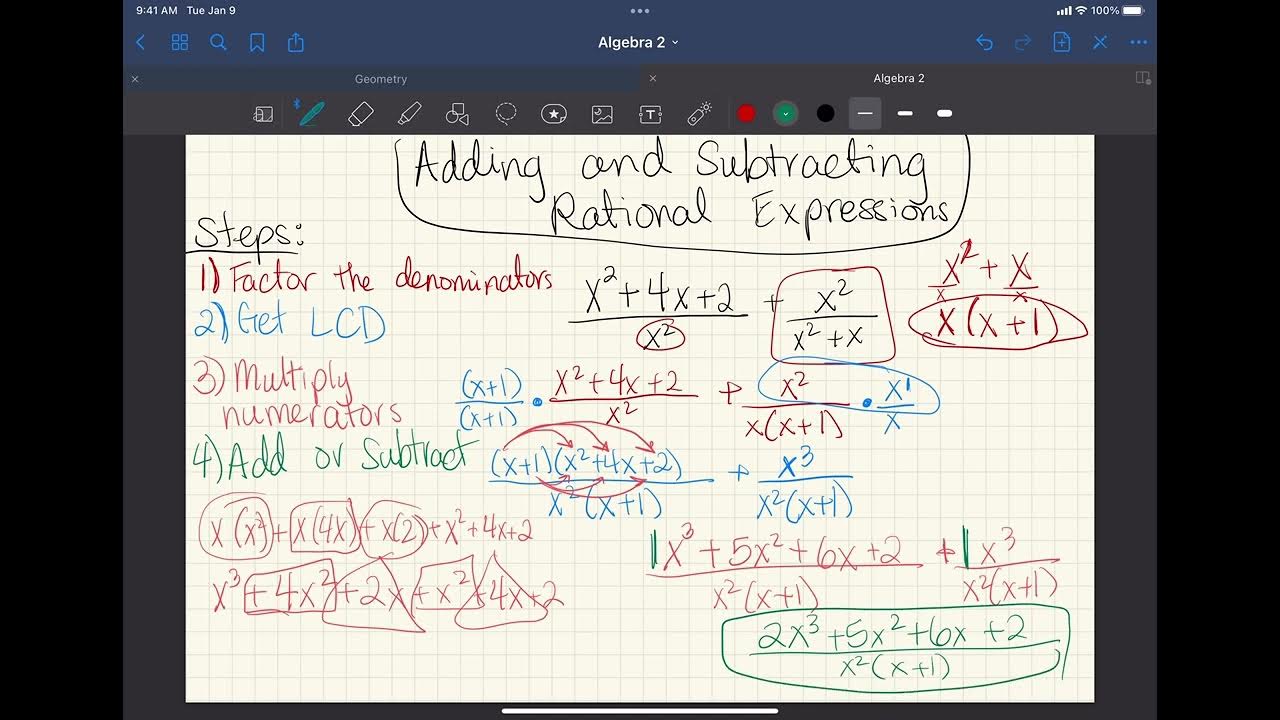 9:41 AM Tue Jan 9
100%
Algebra 2
Geometry
Algebra 2
Adding and Subtracting
Rational Expressions
Steps:
1) Factor the denominators
2) Get LCD
3) Multiply
numerators
4) Add or Subtract
(x²+4x+2)/x² + x²/(x²+x)
x²/x + x/x
x(x+1)
(x+1)/(x+1) • (x²+4x+2)/x² + x²/(x(x+1)) • x¹/x
(x+1)(x²+4x+2)/(x²(x+1)) + x³/(x²(x+1))
x(x²)+x(4x)+x(2)+x²+4x+2
x³+4x²+2x+x²+4x+2
(1x³+5x²+6x+2)/(x²(x+1)) + 1x³/(x²(x+1))
(2x³+5x²+6x+2)/(x²(x+1))